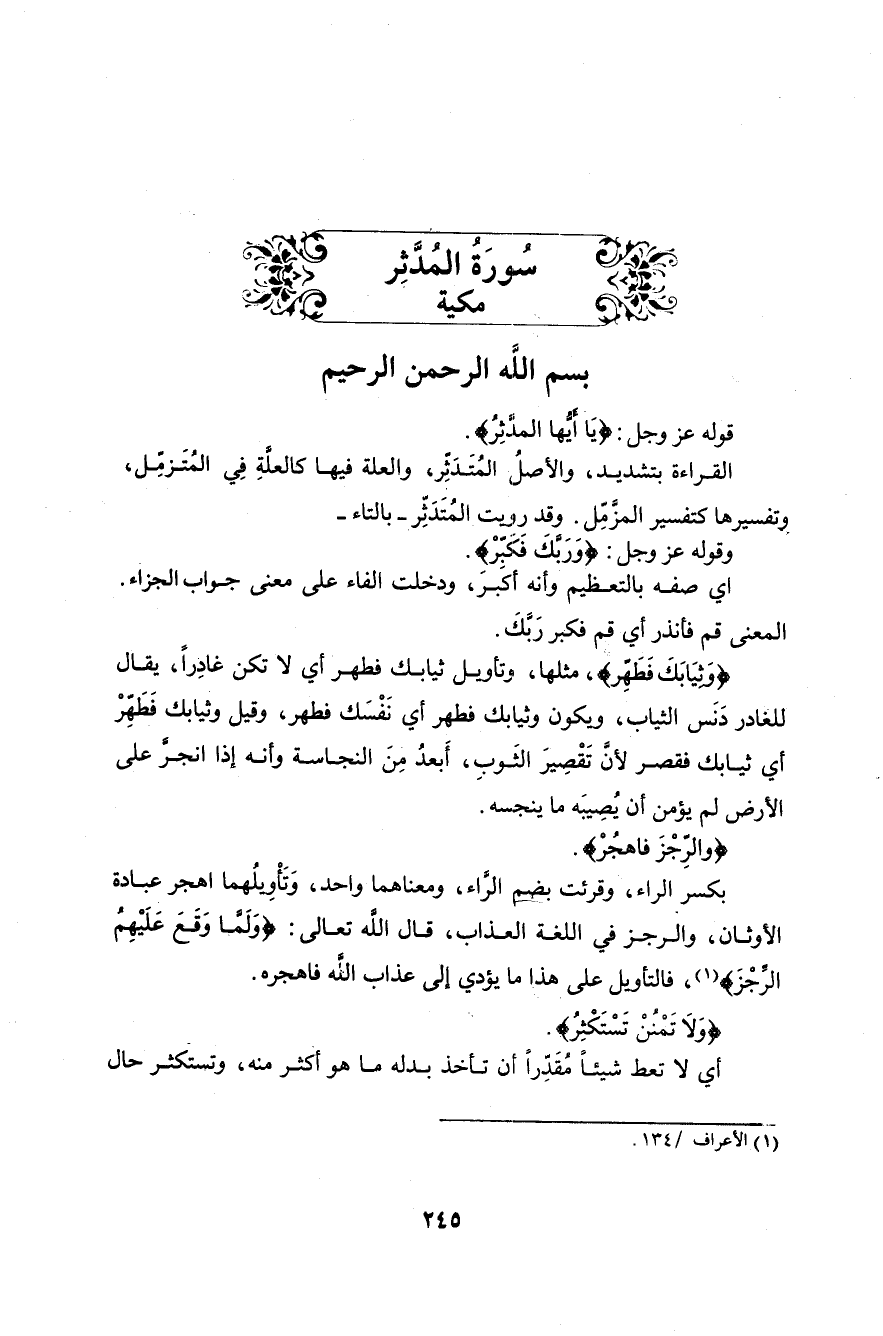 سُورَةُ المُدَّثِر
مكية
بسم اللَّه الرحمن الرحيم
قوله عز وجل: ﴿يَا أَيُّها المدَّثِرُ﴾.
القراءة بتشديد، والأصلُ المُتَدَثِّر، والعلة فيها كالعلَّةِ فِي المُتَزمِّل،
وتفسيرها كتفسير المزَّمِّل. وقد رويت المُتَدَثِّر ـ بالتاء ـ
وقوله عز وجل: ﴿وَرَبَّكَ فَكَبِّرْ﴾.
اي صفه بالتعظيم وأنه أكبرَ، ودخلت الفاء على معنى جواب الجزاء.
المعنى قم فأنذر أي قم فكبر رَبَّكَ.
﴿وَثِيَابَكَ فَطَهِّر﴾، مثلها، وتأويل ثيابك فطهر أي لا تكن غادِراً، يقال
للغادر دَنَس الثياب، ويكون وثيابك فطهر أي نَفْسَك فطهر، وقيل وثيابك فَطَهِّرْ
أي ثيابك فقصر لأنَّ تَقْصِيرَ الثَوبِ، أَبعدُ مِنَ النجاسة وأنه إذا انجرَّ على
الأرض لم يؤمن أن يُصِيبَه ما ينجسه.
﴿والرِّجْزَ فاهجُرْ﴾.
بكسر الراء، وقرئت بضم الرَّاء، ومعناهما واحد، وَتَأْوِيلُهما اهجر عبادة
الأوثان، والرجز في اللغة العذاب، قال اللَّه تعالى: ﴿وَلَمَّا وَقَعَ عَلَيْهِمُ
الرِّجْزَ﴾(١)، فالتأويل على هذا ما يؤدي إلى عذاب اللَّه فاهجره.
﴿وَلَا تَمْنُنْ تَسْتَكْثِرُ﴾.
أي لا تعط شيئاً مُقَدِّراً أن تأخذ بدله ما هو أكثر منه، وتستكثر حال
(١) الأعراف /١٣٤.
٢٤٥